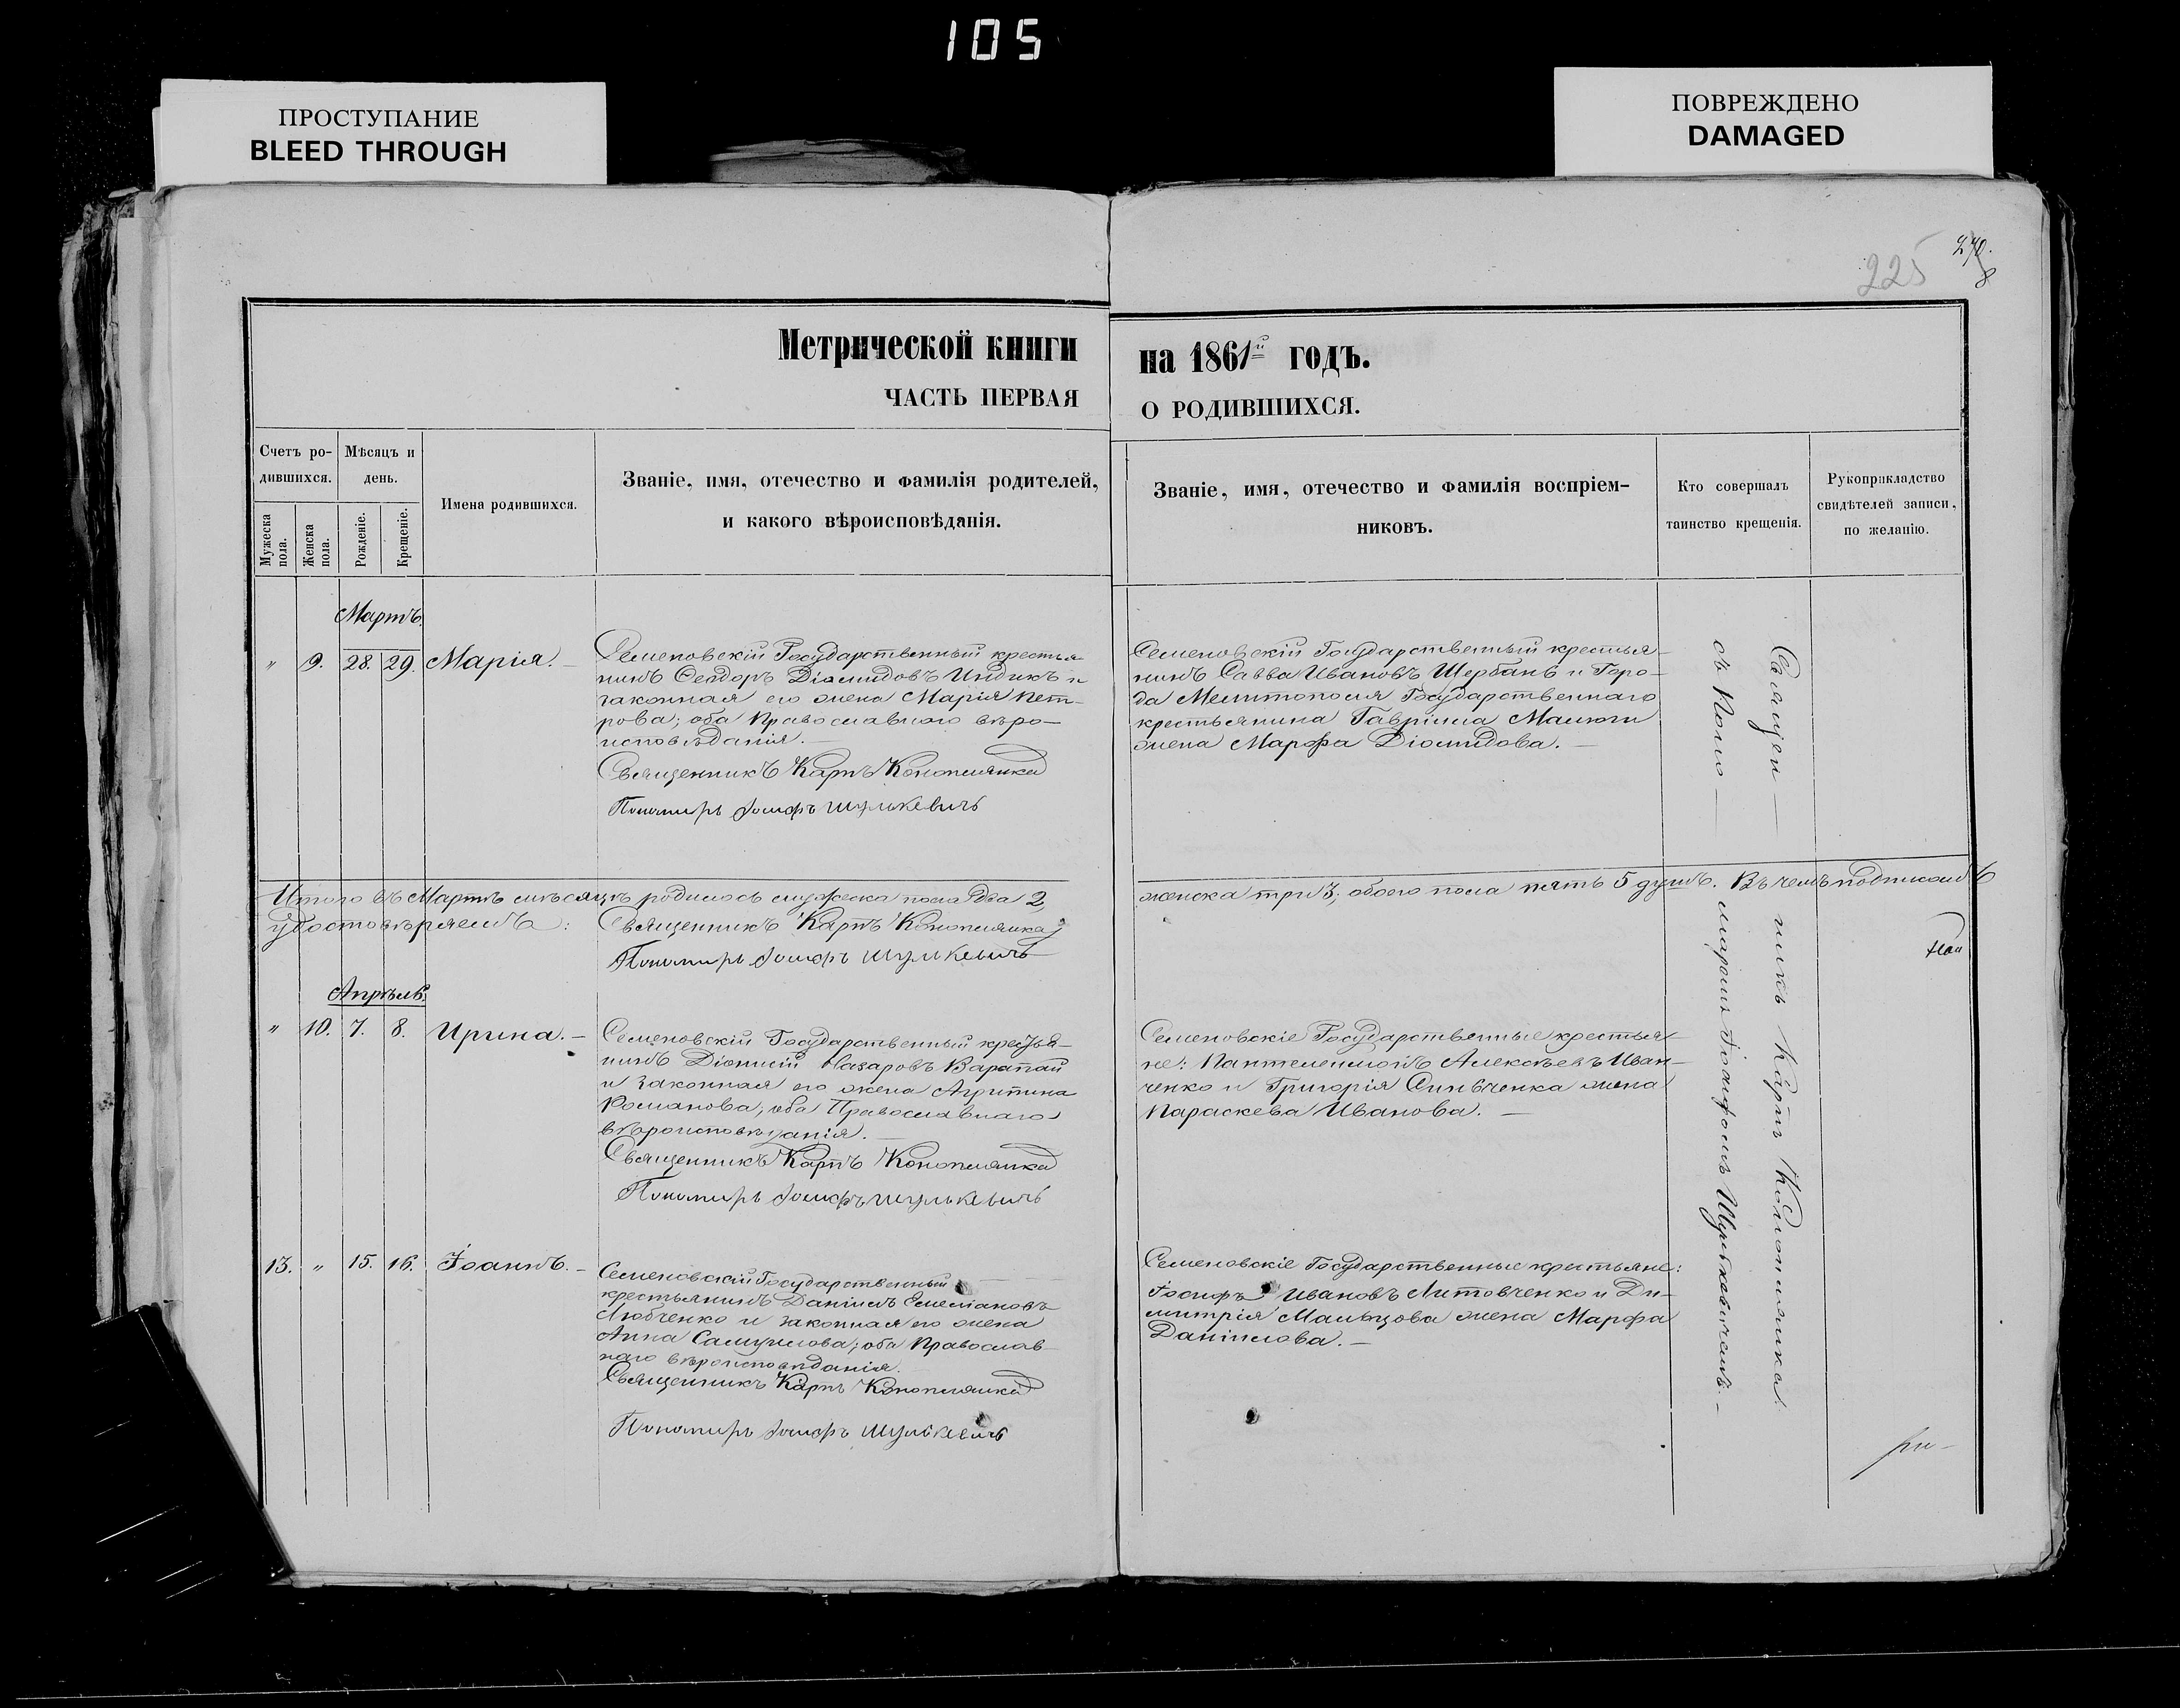 105
ПРОСТУПАНИЕ
BLEED THROUGH
ПОВРЕЖДЕНО
DAMAGED
225
Метрической книги на 1861й годъ.
ЧАСТЬ ПЕРВАЯ О РОДИВШИХСЯ.
Счетъ ро-
дившихся.
Мужеска
пола.
Женска
пола.
Мѣсяцъ и
день.
Рожденіе.
Крещеніе.
Имена родившихся.
Званіе, имя, отечество и фамилія родителей,
и какого вѣроисповѣданія.
Званіе, имя, отечество и фамилія воспріем-
никовъ.
Кто совершалъ
таинство крещенія.
Рукоприкладство
свидѣтелей записи,
по желанію.
Мартъ.
" 9. 28. 29. Марія. —
Семеновскій Государственный крестья-
нинъ Ѳеодоръ Діомидовъ Индикъ и
законная его жена Марія Пет-
рова; оба Православного вѣро-
исповѣданія. —
Священникъ Карпъ Конопляка
Пономарь Іосифъ Шулькевичъ
Семеновскій Государственный крестья-
нинъ Савва Ивановъ Щербанъ и Горо-
да Мелитополя Государственнаго
крестьянина Гавріила Малюги
жена Марфа Діомидова. —
Священ —
съ Поно —
Итого въ Мартѣ мѣсяцѣ родилось мужеска пола два 2, женска три 3; обоего пола пять 5 душъ. Въ чемъ подписомъ
удостовѣряемъ: Священникъ Карпъ Конопляка
Пономарь Іосифъ Шулькевичъ
никъ Карпъ Конопляка.
маремъ Іосифомъ Шулькевичемъ. —
Апрѣль.
" 10. 7. 8. Ирина. —
Семеновскій Государственный крестья-
нинъ Діонисій Назаровъ Варапай
и законная его жена Агрипина
Романова; оба Православнаго
вѣроисповѣданія. —
Священникъ Карпъ Конопляка
Пономарь Іосифъ Шулькевичъ
Семеновскіе Государственные крестья-
не: Пантелеимонъ Алексѣевъ Иван-
ченко и Григорія жена
Параскева Иванова. —
13. " 15. 16. Іоаннъ. —
Семеновскій Государственный
крестьянинъ Даніилъ Емеліановъ
Любченко и законная его жена
Анна Самуилова; оба Православ-
наго вѣроисповѣданія.
Священникъ Карпъ Конопляка
Пономарь Іосифъ Шулькевичъ
Семеновскіе Государственные крестьяне:
Іосифъ Ивановъ Литовченко и Ди-
митрія Мальцова жена Марфа
Даніилова. —